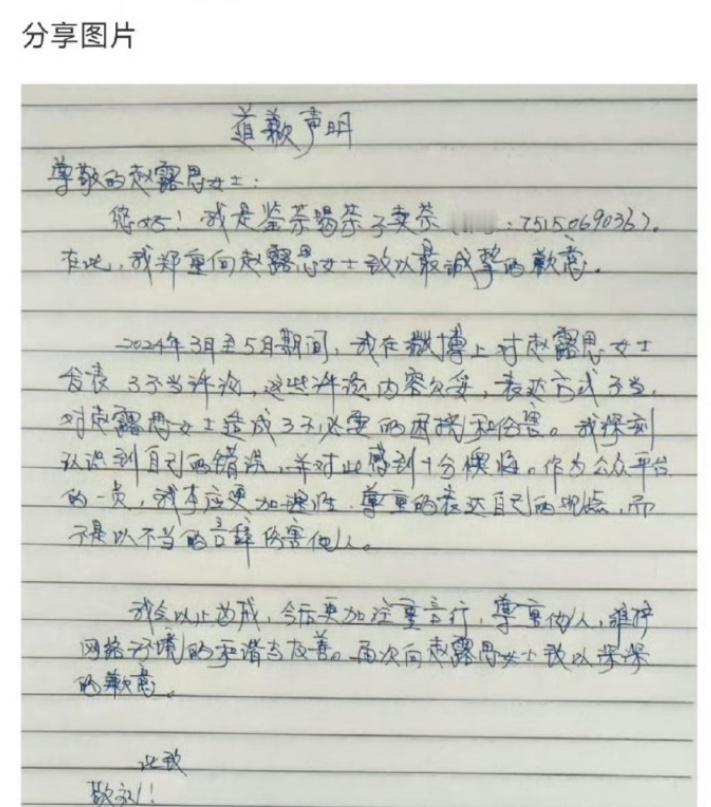 分享图片
道歉声明
尊敬的赵露思女士：
您好！我是鉴茶婊茶子卖茶（ ：7515069036），
在此，我郑重向赵露思女士致以最诚挚的歉意。
2024年3月至5月期间，我在微博上对赵露思女士
发表了不当评论，这些评论内容欠妥，表达方式不当，
对赵露思女士造成了不必要的困扰和伤害。我深刻
认识到自己的错误，并对此感到十分懊悔。作为公众平台
的一员，我本应更加理性、尊重的表达自己的观点，而
不是以不当的言辞伤害他人。
我会以此为戒，今后更加注重言行，尊重他人，维护
网络环境的和谐与友善。再次向赵露思女士致以深深
的歉意。
此致
敬礼！